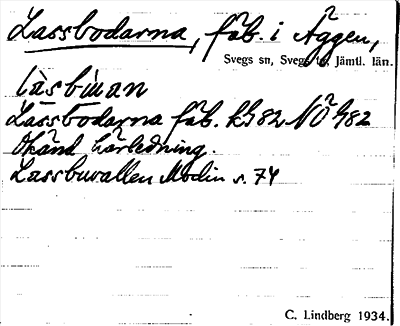 Lassbodarna, fäb. i Äggen,
Svegs sn, Svegs tg, Jämtl. län.
làsbúan
Lassbodarna fäb. LG82 NÖ G82
Okänd härledning.
Lassbuvallen Modin s. 74
C. Lindberg 1934.